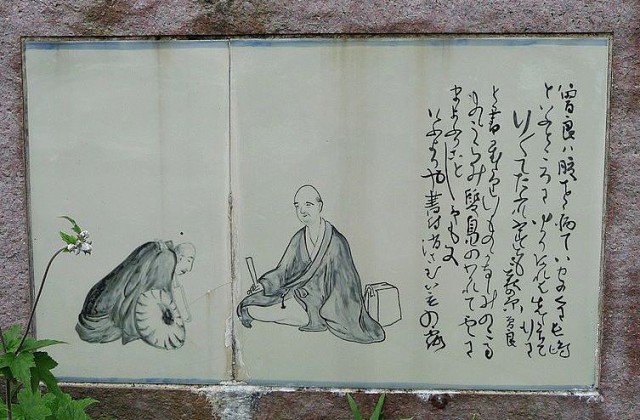 曽良ハ腹を病ていせのくに長嶋
といふところにゆかりあれは先立て行に
行〳〵てたふれ伏とも萩の原 曽良
と書置たり行ものゝかなしみのこる
ものゝうらみ隻鳧のわかれて雲に
まよふかことし予も又
けふよりや書付消さむ笠の露